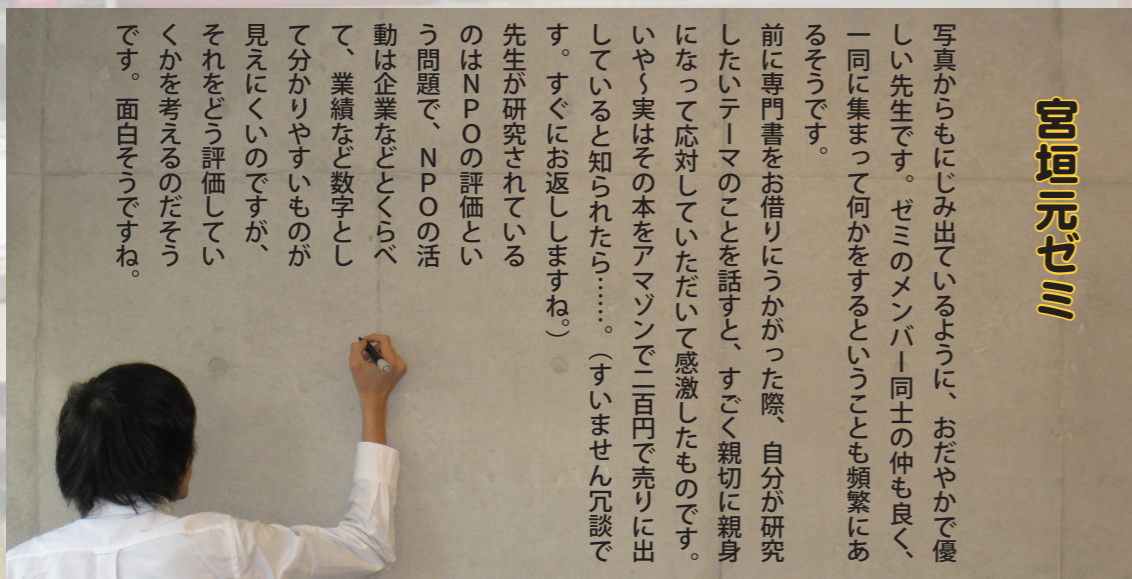 宮垣元ゼミ
写真からもにじみ出ているように、おだやかで優
しい先生です。ゼミのメンバー同士の仲も良く、
一同に集まって何かをするということも頻繁にあ
るそうです。
前に専門書をお借りにうかがった際、自分が研究
したいテーマのことを話すと、すごく親切に親身
になって応対していただいて感激したものです。
いや～実はその本をアマゾンで二百円で売りに出
していると知られたら……。（すいません冗談で
す。すぐにお返ししますね。）
先生が研究されている
のはＮＰＯの評価とい
う問題で、ＮＰＯの活
動は企業などとくらべ
て、業績など数字とし
て分かりやすいものが
見えにくいのですが、
それをどう評価してい
くかを考えるのだそう
です。面白そうですね。